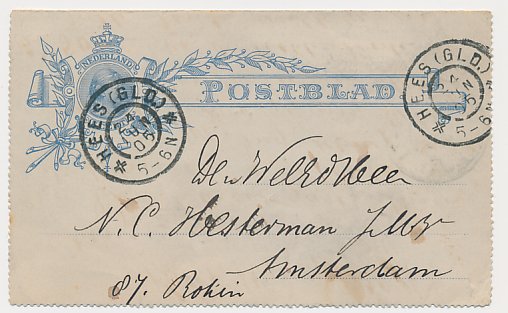 NEDERLAND
POSTBLAD
HEES (GLD.)
24 JUN 05
5-6N
HEES (GLD.)
5-6N
Den WelEdHeer
N. C. Hesterman
Amsterdam
87. Rokin